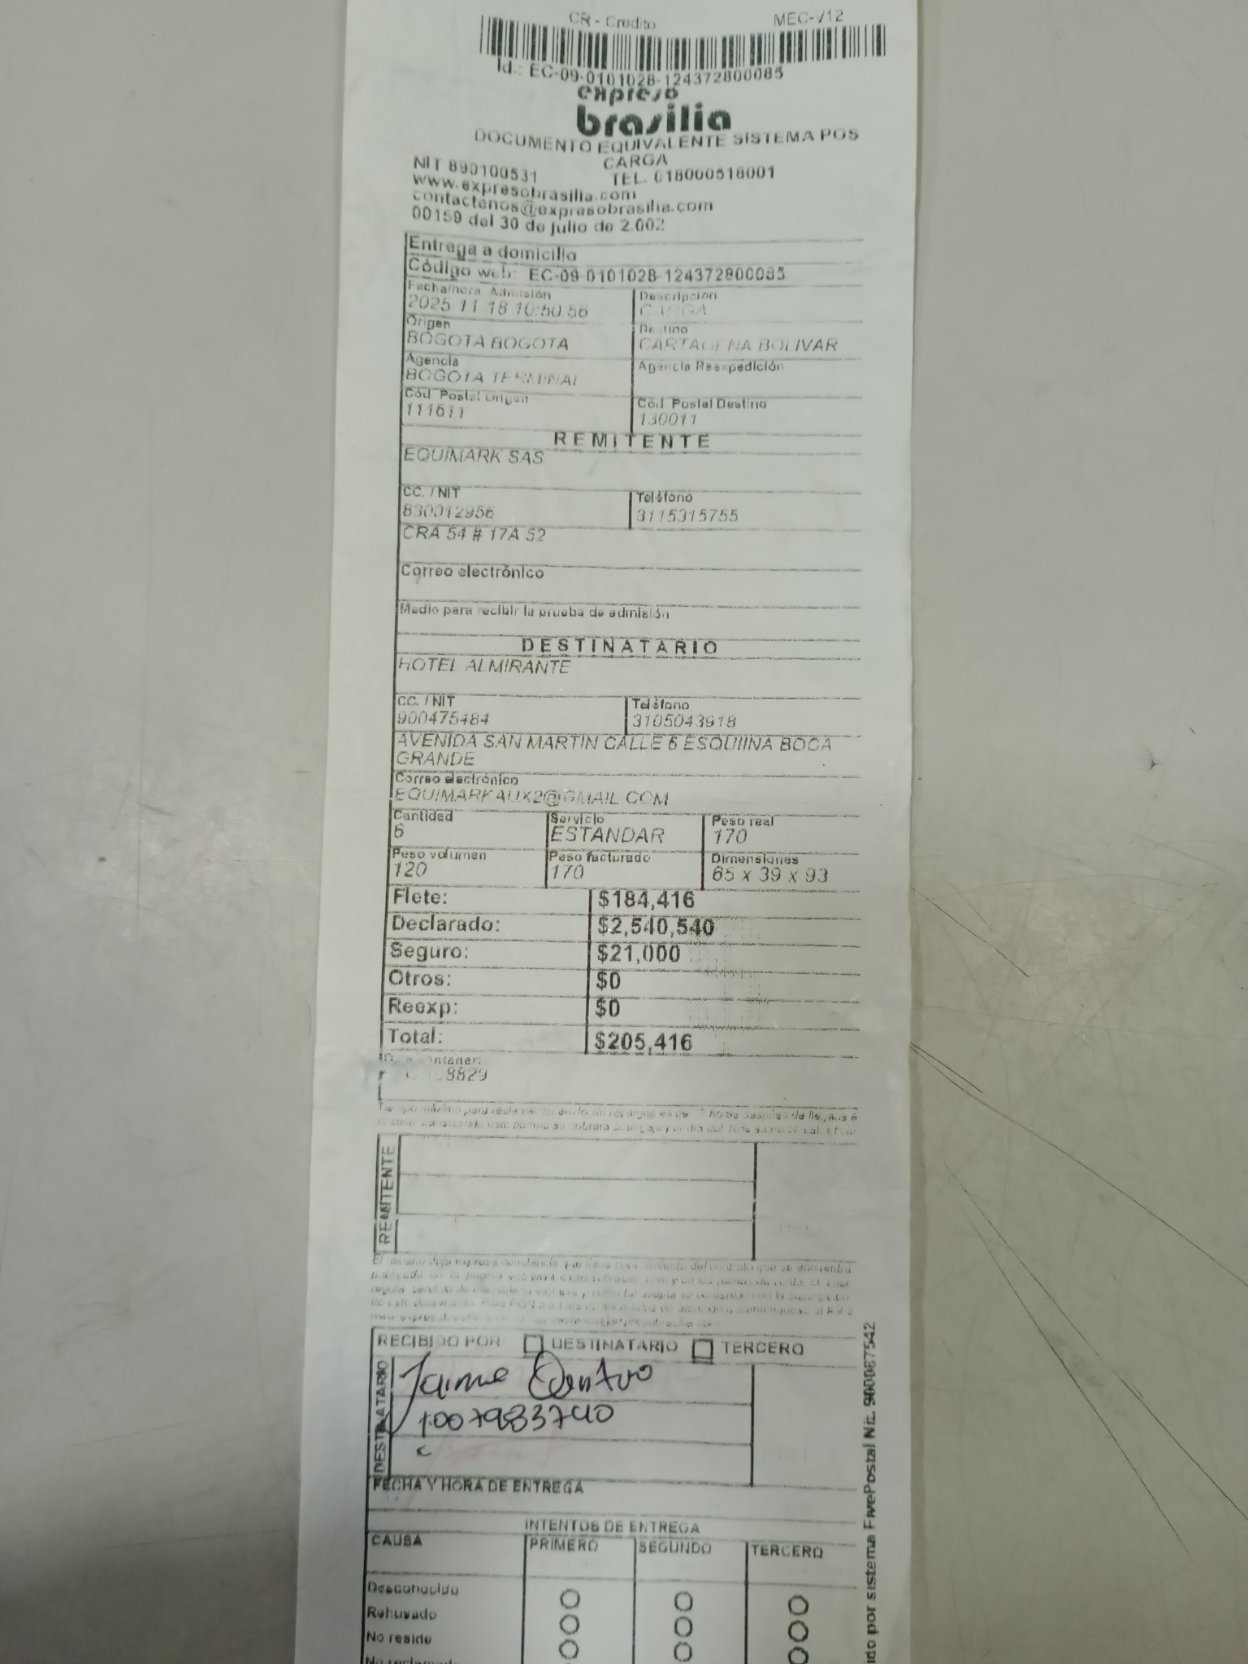 CR - Credito MEC-V12
Id.: EC-09-0101028-124372800085
expreso
brasilia
DOCUMENTO EQUIVALENTE SISTEMA POS
CARGA
NIT 890100531 TEL. 018000518001
www.expresobrasilia.com
contactenos@expresobrasilia.com
00159 del 30 de julio de 2.002
Entrega a domicilio
Código web: EC-09-0101028-124372800085
Fecha/hora Admisión Descripción
2025-11-18 10:50:56 CARGA
Origen Destino
BOGOTA BOGOTA CARTAGENA BOLIVAR
Agencia Agencia Reexpedición
BOGOTA TERMINAL
Cód. Postal Origen Cód. Postal Destino
111611 130011
REMITENTE
EQUIMARK SAS
CC. / NIT Teléfono
830012956 3115315755
CRA 54 # 17A 52
Correo electrónico
Medio para recibir la prueba de admisión
DESTINATARIO
HOTEL ALMIRANTE
CC. / NIT Teléfono
900475484 3105043918
AVENIDA SAN MARTIN CALLE 6 ESQUIINA BOCA
GRANDE
Correo electrónico
EQUIMARKAUX2@GMAIL.COM
Cantidad Servicio Peso real
6 ESTANDAR 170
Peso volumen Peso facturado Dimensiones
120 170 65 x 39 x 93
Flete: $184,416
Declarado: $2,540,540
Seguro: $21,000
Otros: $0
Reexp: $0
Total: $205,416
8829
REMITENTE
RECIBIDO POR DESTINATARIO TERCERO
DESTINATARIO
Jaime
1007983740
FECHA Y HORA DE ENTREGA
INTENTOS DE ENTREGA
CAUSA PRIMERO SEGUNDO TERCERO
Desconocido
Rehusado
No reside
No reclamado
ido por sistema FivePostal Nit. 900087542